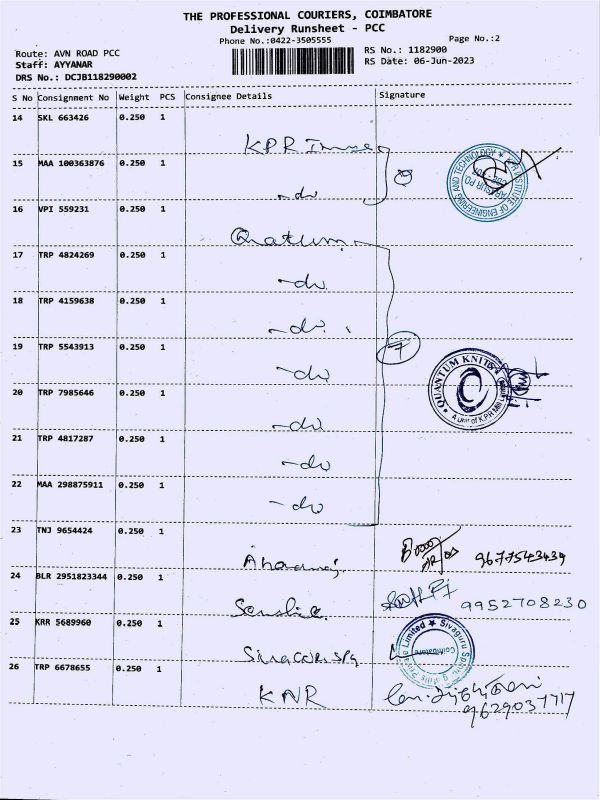 THE PROFESSIONAL COURIERS, COIMBATORE
Delivery Runsheet - PCC
Phone No.:0422-3505555
Page No.:2
Route: AVN ROAD PCC
RS No.: 1182900
Staff: AYYANAR
RS Date: 06-Jun-2023
DRS No.: DCJB118290002
S No Consignment No Weight PCS Consignee Details Signature
14 SKL 663426 0.250 1 KPR
15 MAA 100363876 0.250 1 -do
KPR INSTITUTE OF ENGINEERING AND TECHNOLOGY ★
16 VPI 559231 0.250 1
17 TRP 4824269 0.250 1 -do
18 TRP 4159638 0.250 1 -do
19 TRP 5543913 0.250 1 -do
7
QUANTUM KNITS
A Unit of K.P.R Mill Limited
20 TRP 7985646 0.250 1 -do
21 TRP 4817287 0.250 1 -do
22 MAA 298875911 0.250 1 -do
23 TNJ 9654424 0.250 1 9677543439
24 BLR 2951823344 0.250 1 9952708230
25 KRR 5689960 0.250 1
Sivaguru Spinning Mills Private Limited ★
Coimbatore
26 TRP 6678655 0.250 1 KNR
9629037717